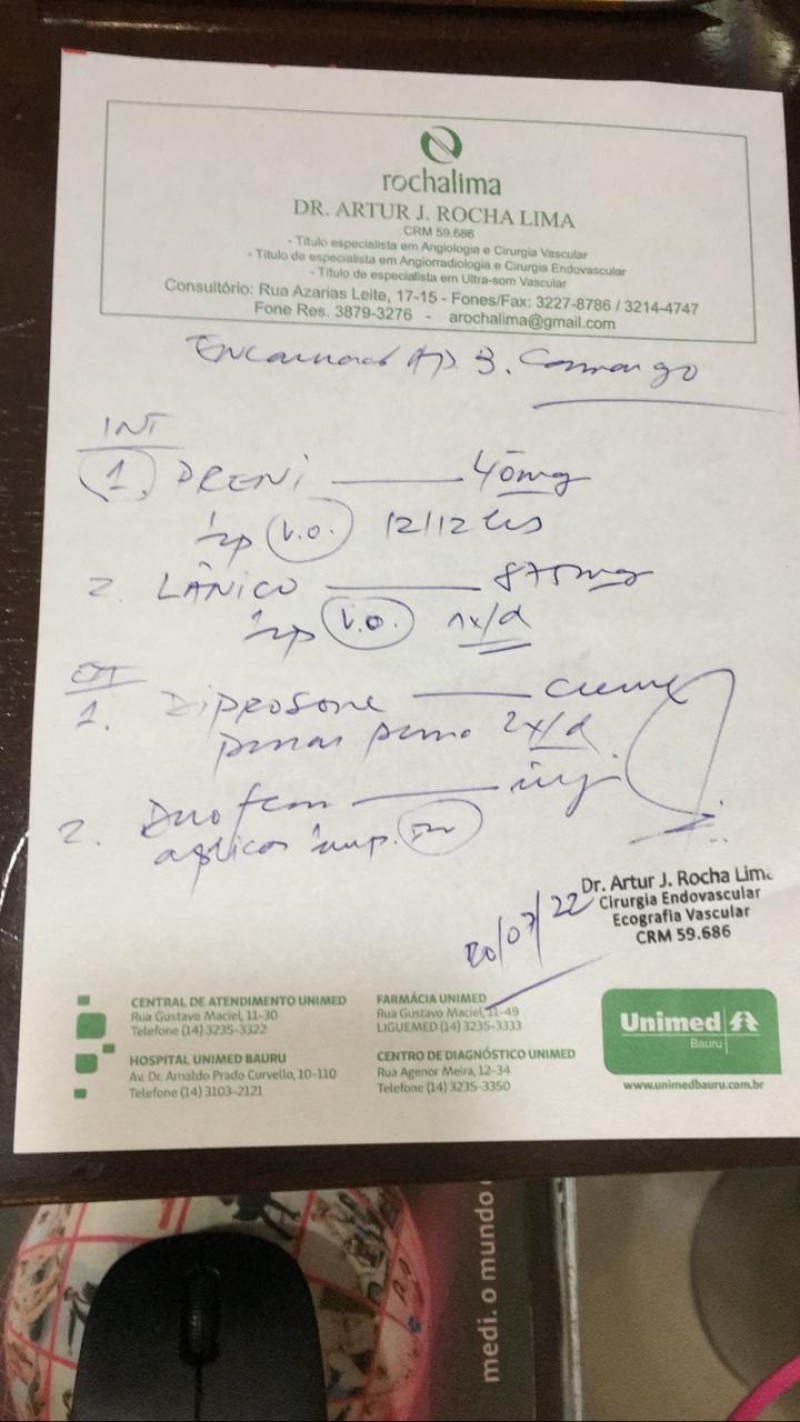 rochalima
DR. ARTUR J. ROCHA LIMA
CRM 59.686
- Título especialista em Angiologia e Cirurgia Vascular
- Título de especialista em Angiorradiologia e Cirurgia Endovascular
- Título de especialista em Ultra-som Vascular
Consultório: Rua Azarias Leite, 17-15 - Fones/Fax: 3227-8786 / 3214-4747
Fone Res. 3879-3276 - arochalima@gmail.com
B. Camargo
INT
1. DRENI 40mg
V.O. 12/12 hs
2. LÂNICO 875mg
V.O. 1x/d
EXT
1. Diprosone creme
2x/d
2. Duoflam inj
aplicar
20/07/22
Dr. Artur J. Rocha Lima
Cirurgia Endovascular
Ecografia Vascular
CRM 59.686
CENTRAL DE ATENDIMENTO UNIMED
Rua Gustavo Maciel, 11-30
Telefone (14) 3235-3322
FARMÁCIA UNIMED
Rua Gustavo Maciel, 11-49
LIGUEMED (14) 3235-3333
HOSPITAL UNIMED BAURU
Av. Dr. Arnaldo Prado Curvello, 10-110
Telefone (14) 3103-2121
CENTRO DE DIAGNÓSTICO UNIMED
Rua Agenor Meira, 12-34
Telefone (14) 3235-3350
Unimed
Bauru
www.unimedbauru.com.br
medi. o mundo